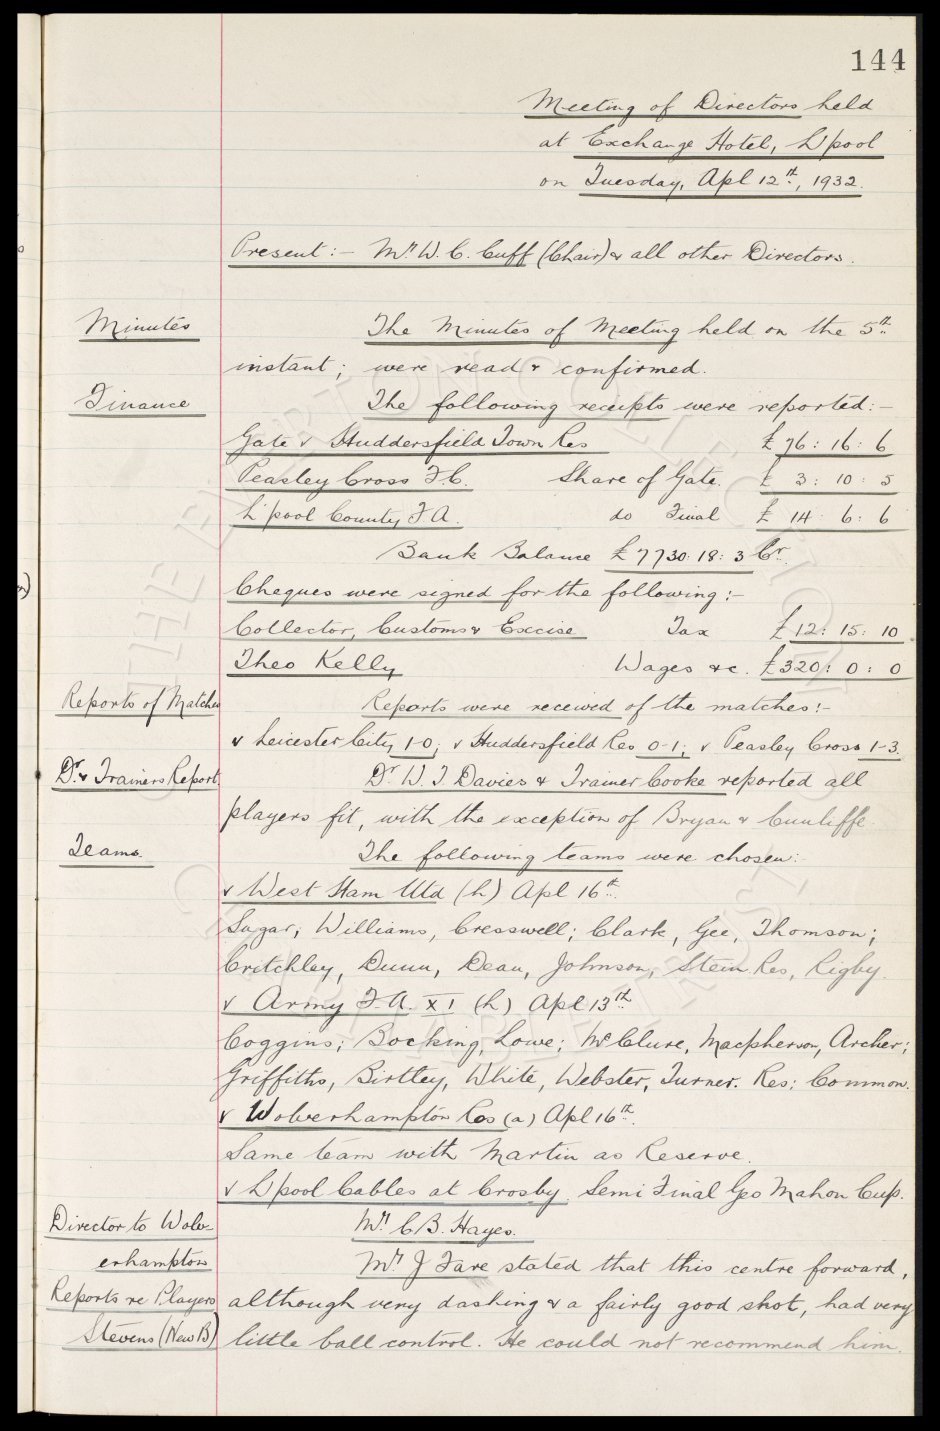 144
Meeting of Directors held
at Exchange Hotel, L'pool
on Tuesday, Apl 12th, 1932.
Present :- Mr W. C. Cuff (Chair) & all other Directors.
Minutes The Minutes of Meeting held on the 5th
instant; were read & confirmed.
Finance The following receipts were reported:-
Gate v Huddersfield Town Res £76: 16: 6
Peasley Cross F.C. Share of Gate. £ 3: 10: 5
L'pool County F.A. do Final £ 14 6: 6
Bank Balance £7730: 18: 3 Cr.
Cheques were signed for the following:-
Collector, Customs & Excise Tax £12: 15: 10
Theo Kelly Wages &c. £320: 0: 0
Reports of Matches Reports were received of the matches:-
v Leicester City 1-0; v Huddersfield Res 0-1; v Peasley Cross 1-3.
Dr. & Trainers Report. Dr. W. J. Davies & Trainer Cooke reported all
players fit, with the exception of Bryan & Cunliffe.
Teams. The following teams were chosen:
v West Ham Utd (h) Apl 16th.
Sagar; Williams, Cresswell; Clark, Gee, Thomson;
Critchley, Dunn, Dean, Johnson, Stein. Res, Rigby.
v Army F.A. XI (h) Apl 13th
Coggins; Bocking, Lowe; McClure, Macpherson, Archer;
Griffiths, Birtley, White, Webster, Turner. Res: Common.
v Wolverhampton Res (a) Apl 16th.
Same team with Martin as Reserve.
v L'pool Cables at Crosby. Semi Final Geo Mahon Cup.
Director to Wolv- Mr C B. Hayes.
erhampton Mr J Fare stated that this centre forward,
Reports re Players although very dashing & a fairly good shot, had very
Stevens (New B) little ball control. He could not recommend him.
THE EVERTON COLLECTION
CHARITABLE TRUST